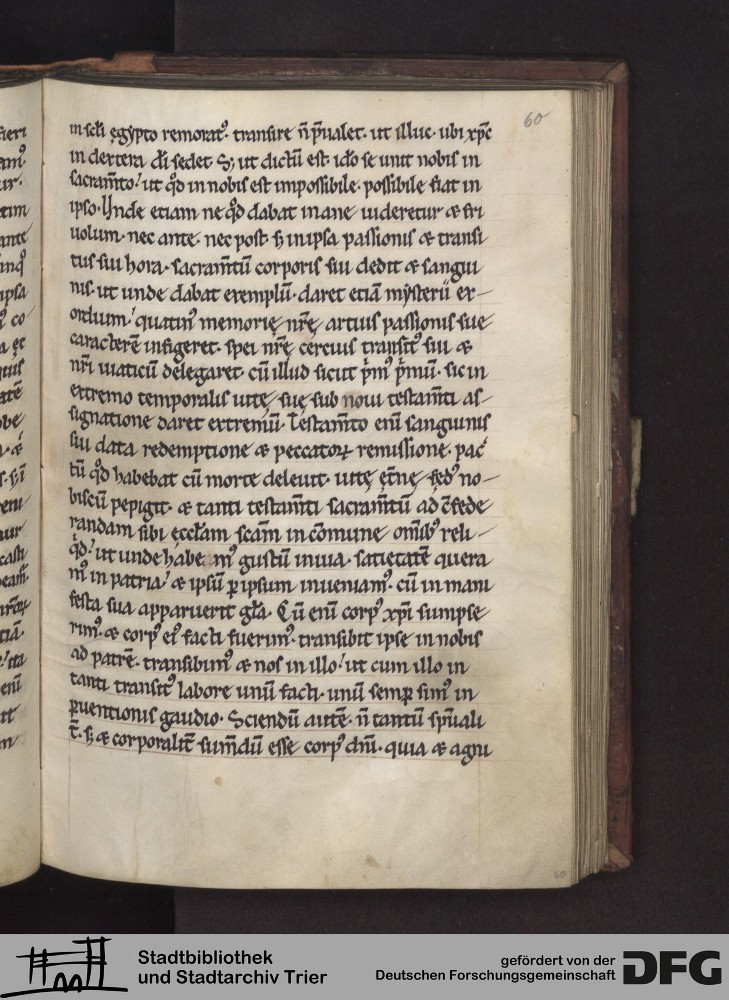 60
in scłi ęgypto remorat᷒. transire n̄ p̄ualet. ut illuc. ubi xp̄c
in dextera d̄i sedet. S; ut dictū est. idō se unit nobis in
sacram̄to! ut qd̄ in nobis est impossibile. possibile fiat in
ipso. Unde etiam ne qd̄ dabat inane uideretur & fri
uolum. nec ante. nec post. s; in ipsa passionis & transi
tus sui hora. sacram̄tū corporis sui dedit & sangui
nis. ut unde dabat exemplū. daret etiā mysterii ex-
ordium! quatin᷒ memorię nr̄ę artius passionis suę
caracterē infigeret. spei nr̄ę certius transit᷒ sui &
nr̄i uiaticū delegaret. cū illud sicut p̄m᷒ p̄mū. sic in
extremo temporalis uitę suę sub noui testam̄ti as-
signatione daret extremū. Testam̄to enī sanguinis
sui data redemptione & peccatoꝝ remissione. pac
tū qd̄ habebat cū morte deleuit. uitę ęt̄nę fed᷒ no-
biscū pepigit. & tanti testam̄ti sacram̄tū ad c̄fede
randam sibi eccłam scām in cōmune om̄ib᷒ reli-
qd̄! ut unde habe m᷒ gustū in uia. satietatē quera
m᷒ in patria! & ipsū ꝑ ipsum inueniam᷒. cū in mani
festa sua apparuerit gła. Cū enī corp᷒ xp̄i sumpse
rim᷒. & corp᷒ ei᷒ facti fuerim᷒. transibit ipse in nobis
ad patrē. transibim᷒ & nos in illo! ut cum illo in
tanti transit᷒ labore unū facti. unū semꝑ sim᷒ in
ꝑuentionis gaudio. Sciendū autē. n̄ tantū sp̄uali
t̄. s; & corporalit̄ sum̄dū esse corp᷒ dn̄i. quia & agni
Stadtbibliothek
und Stadtarchiv Trier
gefördert von der
Deutschen Forschungsgemeinschaft
DFG